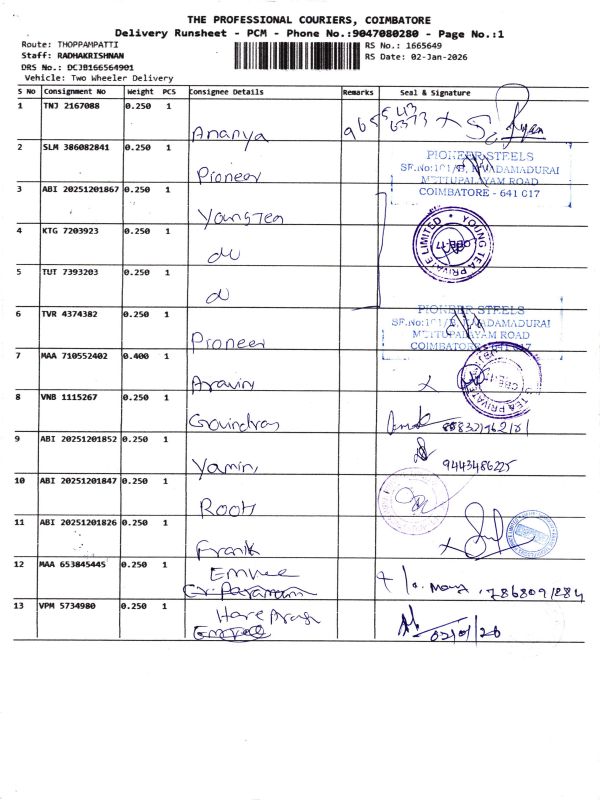 THE PROFESSIONAL COURIERS, COIMBATORE
Delivery Runsheet - PCM - Phone No.:9047080280 - Page No.:1
Route: THOPPAMPATTI
RS No.: 1665649
Staff: RADHAKRISHNAN
RS Date: 02-Jan-2026
DRS No.: DCJB166564901
Vehicle: Two Wheeler Delivery
S No Consignment No Weight PCS Consignee Details Remarks Seal & Signature
1 TNJ 2167088 0.250 1
Ananya
2 SLM 386082841 0.250 1
Pioneer
PIONEER STEELS
METTUPALAYAM ROAD
COIMBATORE - 641 017
3 ABI 20251201867 0.250 1
Young Tea
YOUNG TEA PRIVATE LIMITED
4 KTG 7203923 0.250 1
do
5 TUT 7393203 0.250 1
do
6 TVR 4374382 0.250 1
Pioneer
PIONEER STEELS
METTUPALAYAM ROAD
COIMBATORE
7 MAA 710552402 0.400 1
Aravin
8 VNB 1115267 0.250 1
9 ABI 20251201852 0.250 1
Yamini
9443486225
10 ABI 20251201847 0.250 1
Roots
11 ABI 20251201826 0.250 1
Frank
12 MAA 653845445 0.250 1
Emvee
13 VPM 5734980 0.250 1
02/01/26